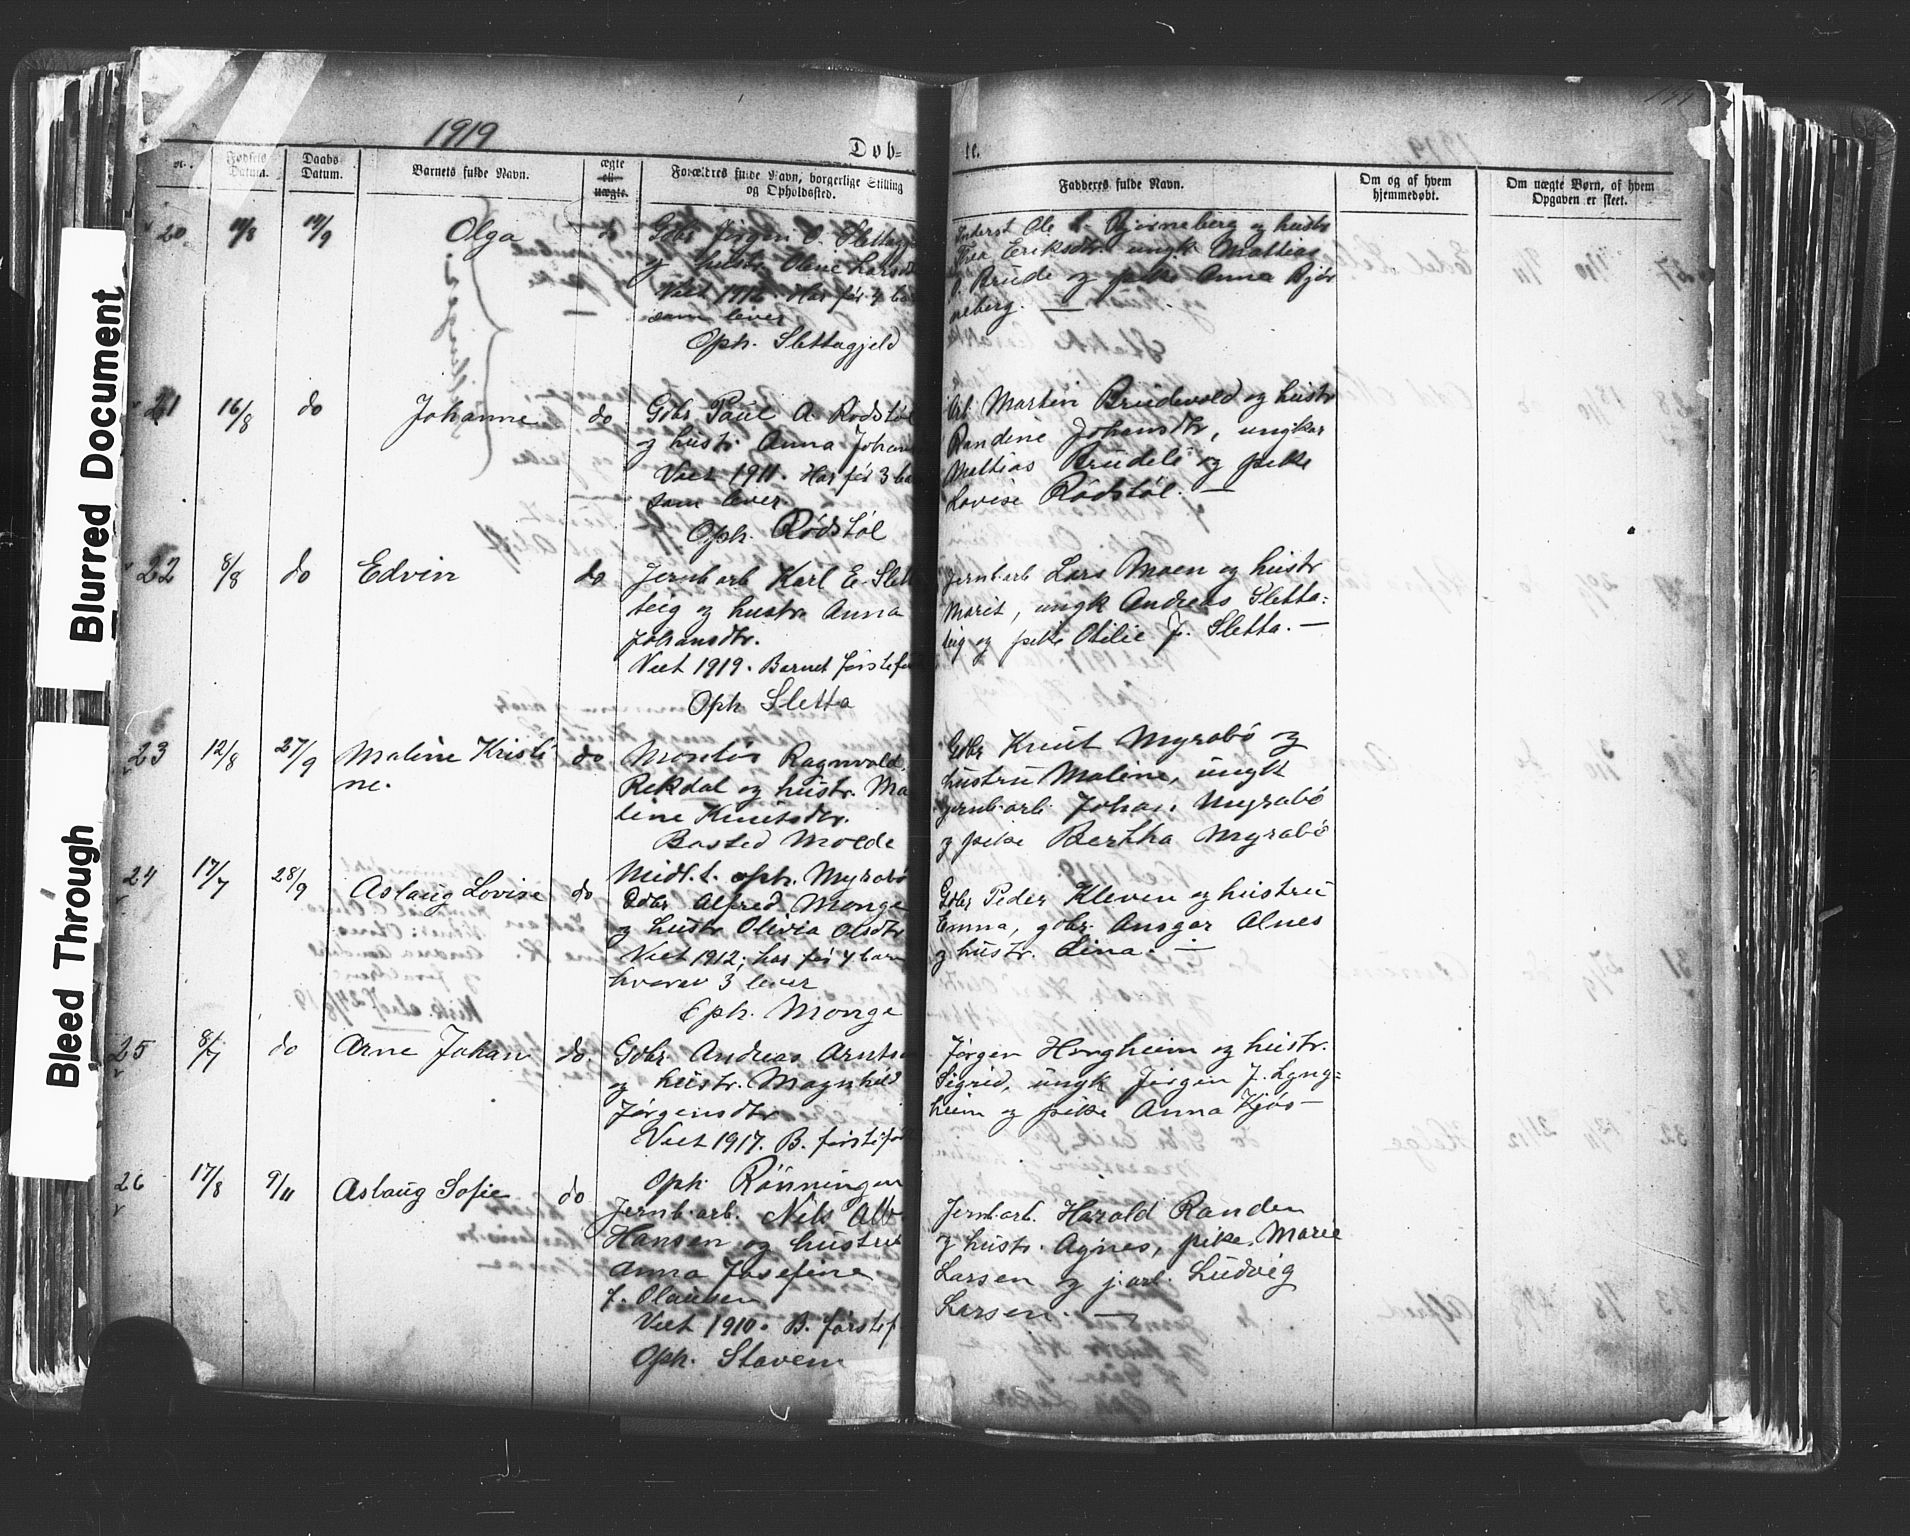 Blurred Document
Bleed Through
1919
Døb-
te.
Nr.
Fødsels Datum.
Daabs Datum.
Barnets fulde Navn.
ægte eller uægte.
Forældres fulde Navn, borgerlige Stilling og Opholdssted.
Fadderes fulde Navn.
Om og af hvem hjemmedøbt.
Om uægte Børn, af hvem Opgaven er skeet.
20
14/9
Olga
do
Gbr. Jørgen O. Slettagj
og hustr. Olene Larsdt
Viet 1912. Har før 4 barn
som lever
Oph. Slettagjeld
Inderst Ole Bjørneberg og hustr
Thea Eriksdtr. ungk Mattias
Brude og pike Anna Bjør
neberg. —
21
16/8
do
Johanne
do
Gbr. Paul A. Rødstøl
og hustr. Anna Johans
Viet 1911. Har før 3 ba
som lever
Oph. Rødstøl
Arb. Martin Brudevold og hustr
Randine Johansdtr, ungkar
Mattias Brudeli og pike
Lovise Rødstøl. —
22
8/8
do
Edvin
do
Jernb.arb. Karl E. Slett
teig og hustr. Anna
Johansdtr.
Viet 1919. Barnet førstefø
Oph Sletta
Jernb.arb Lars Moen og hustr
Marit, ungk Andreas Sletta:
teig og pike Otilie J. Sletta. —
23
12/8
27/9
Maline Kristi
ne.
do
Montør Ragnvald
Rekdal og hustr. Ma
line Knutsdtr.
Bosted Molde
Midl.t. oph. Myrabø
Gbr Knut Myrabø og
hustru Maline, ungk
jernb.arb. Johan Myrabø
og pike Berthha Myrabø
24
17/7
28/9
Aslaug Lovise
do
Gbr Alfred Monge
og hustr Olivia Olsdtr
Viet 1912; har før 4 barn
hvorav 3 lever
Oph. Monge
Gbr Peder Kleven og hustru
Emma, gbr. Ansgar Alnes
og hustr. Lina. —
25
8/7
do
Arne Johan
do.
Gbr Andreas Arnts
og hustr. Magnhild
Jørgensdtr
Viet 1917. B. førstefø
Oph. Rönningen
Jørgen Hongheim og hustr.
Sigrid, ungk Jørgen J. Lyng=
heim og pike Anna Kjøs —
26
17/8
9/11
Aslaug Sofie
do
Jernb.arb. Nils Alb.
Hansen og hustru
Anna Josefine
f. Olausen
Viet 1910. B. førstef.
Oph. Stavem
Jernb.arb. Harald Randen
og hustr. Agnes, pike Marie
Larsen og j.arb. Ludvig
Larsen. —